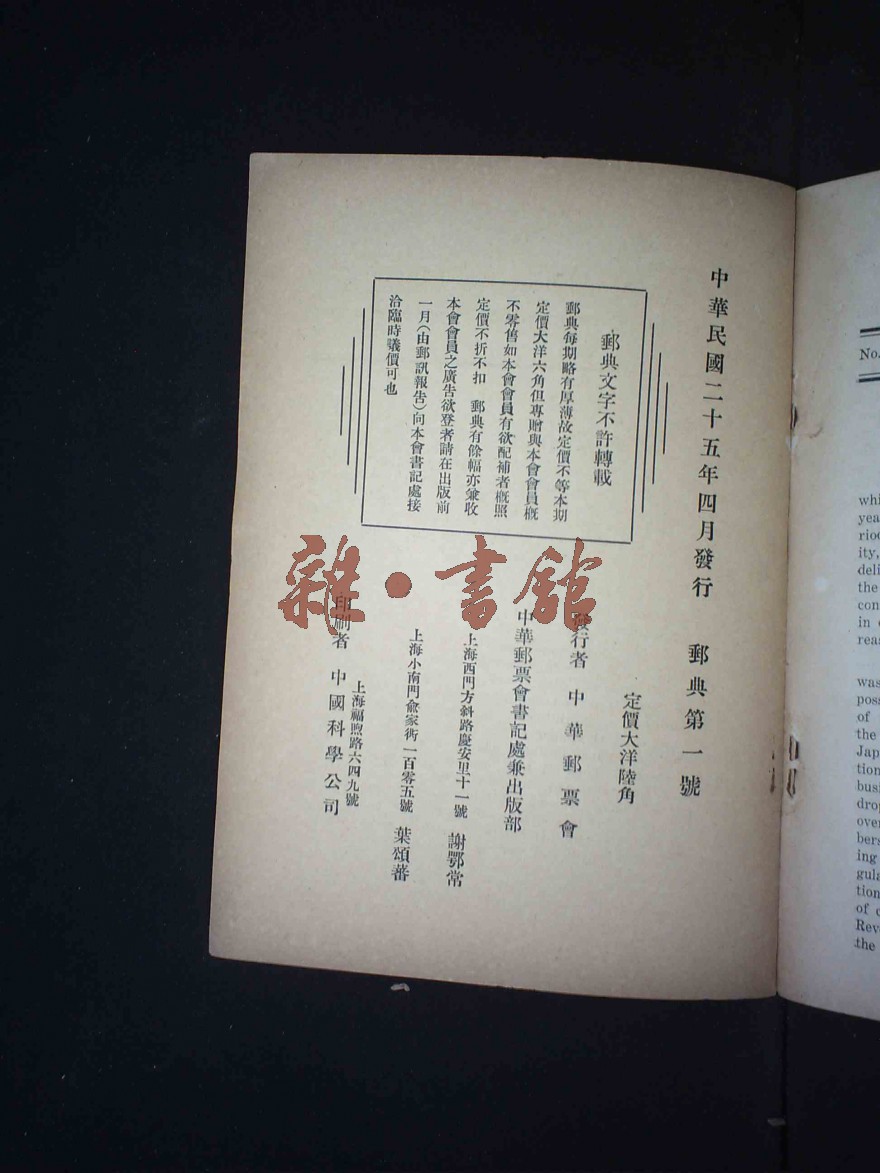 中華民國二十五年四月發行　郵典第一號
定價大洋陸角
發行者　中華郵票會
中華郵票會書記處兼出版部
上海西門方斜路慶安里十一號　謝鄂常
上海小南門俞家衖一百零五號　葉頌蕃
上海福煦路六四九號
印刷者　中國科學公司
郵典文字不許轉載
郵典每期略有厚薄故定價不等本期
定價大洋六角但專贈與本會會員概
不零售如本會會員有欲配補者概照
定價不折不扣　郵典有餘幅亦兼收
本會會員之廣告欲登者請在出版前
一月(由郵訊報告)向本會書記處接
洽臨時議價可也
雜·書館
No.
whi
yea
riod
ity,
deli
the
con
in
reas
was
poss
of
the
Jap
tion
busi
drop
over
bers
ing
gula
tion
of c
Rev
the